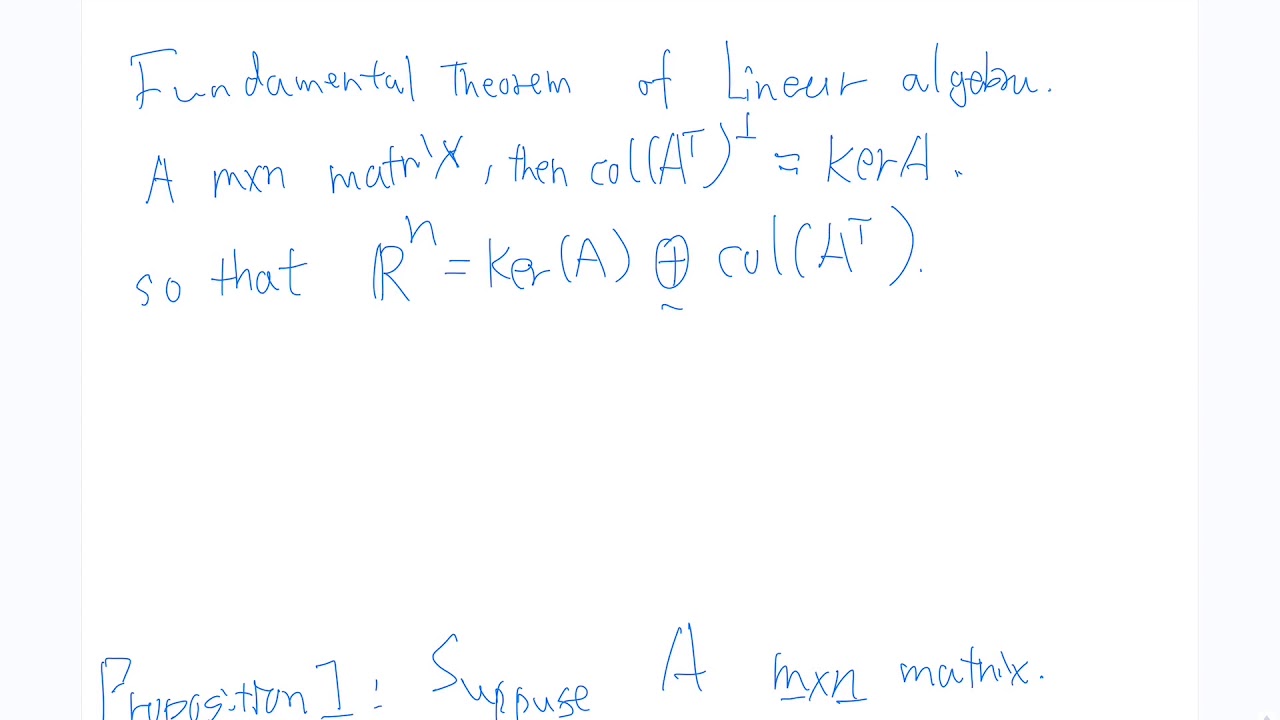 Fundamental Theorem of Linear algebra.
A m×n matrix, then col(Aᵀ)^⊥ = KerA.
so that ℝⁿ = Ker(A) ⊕ col(Aᵀ).
Proposition 1: Suppose A m×n matrix.